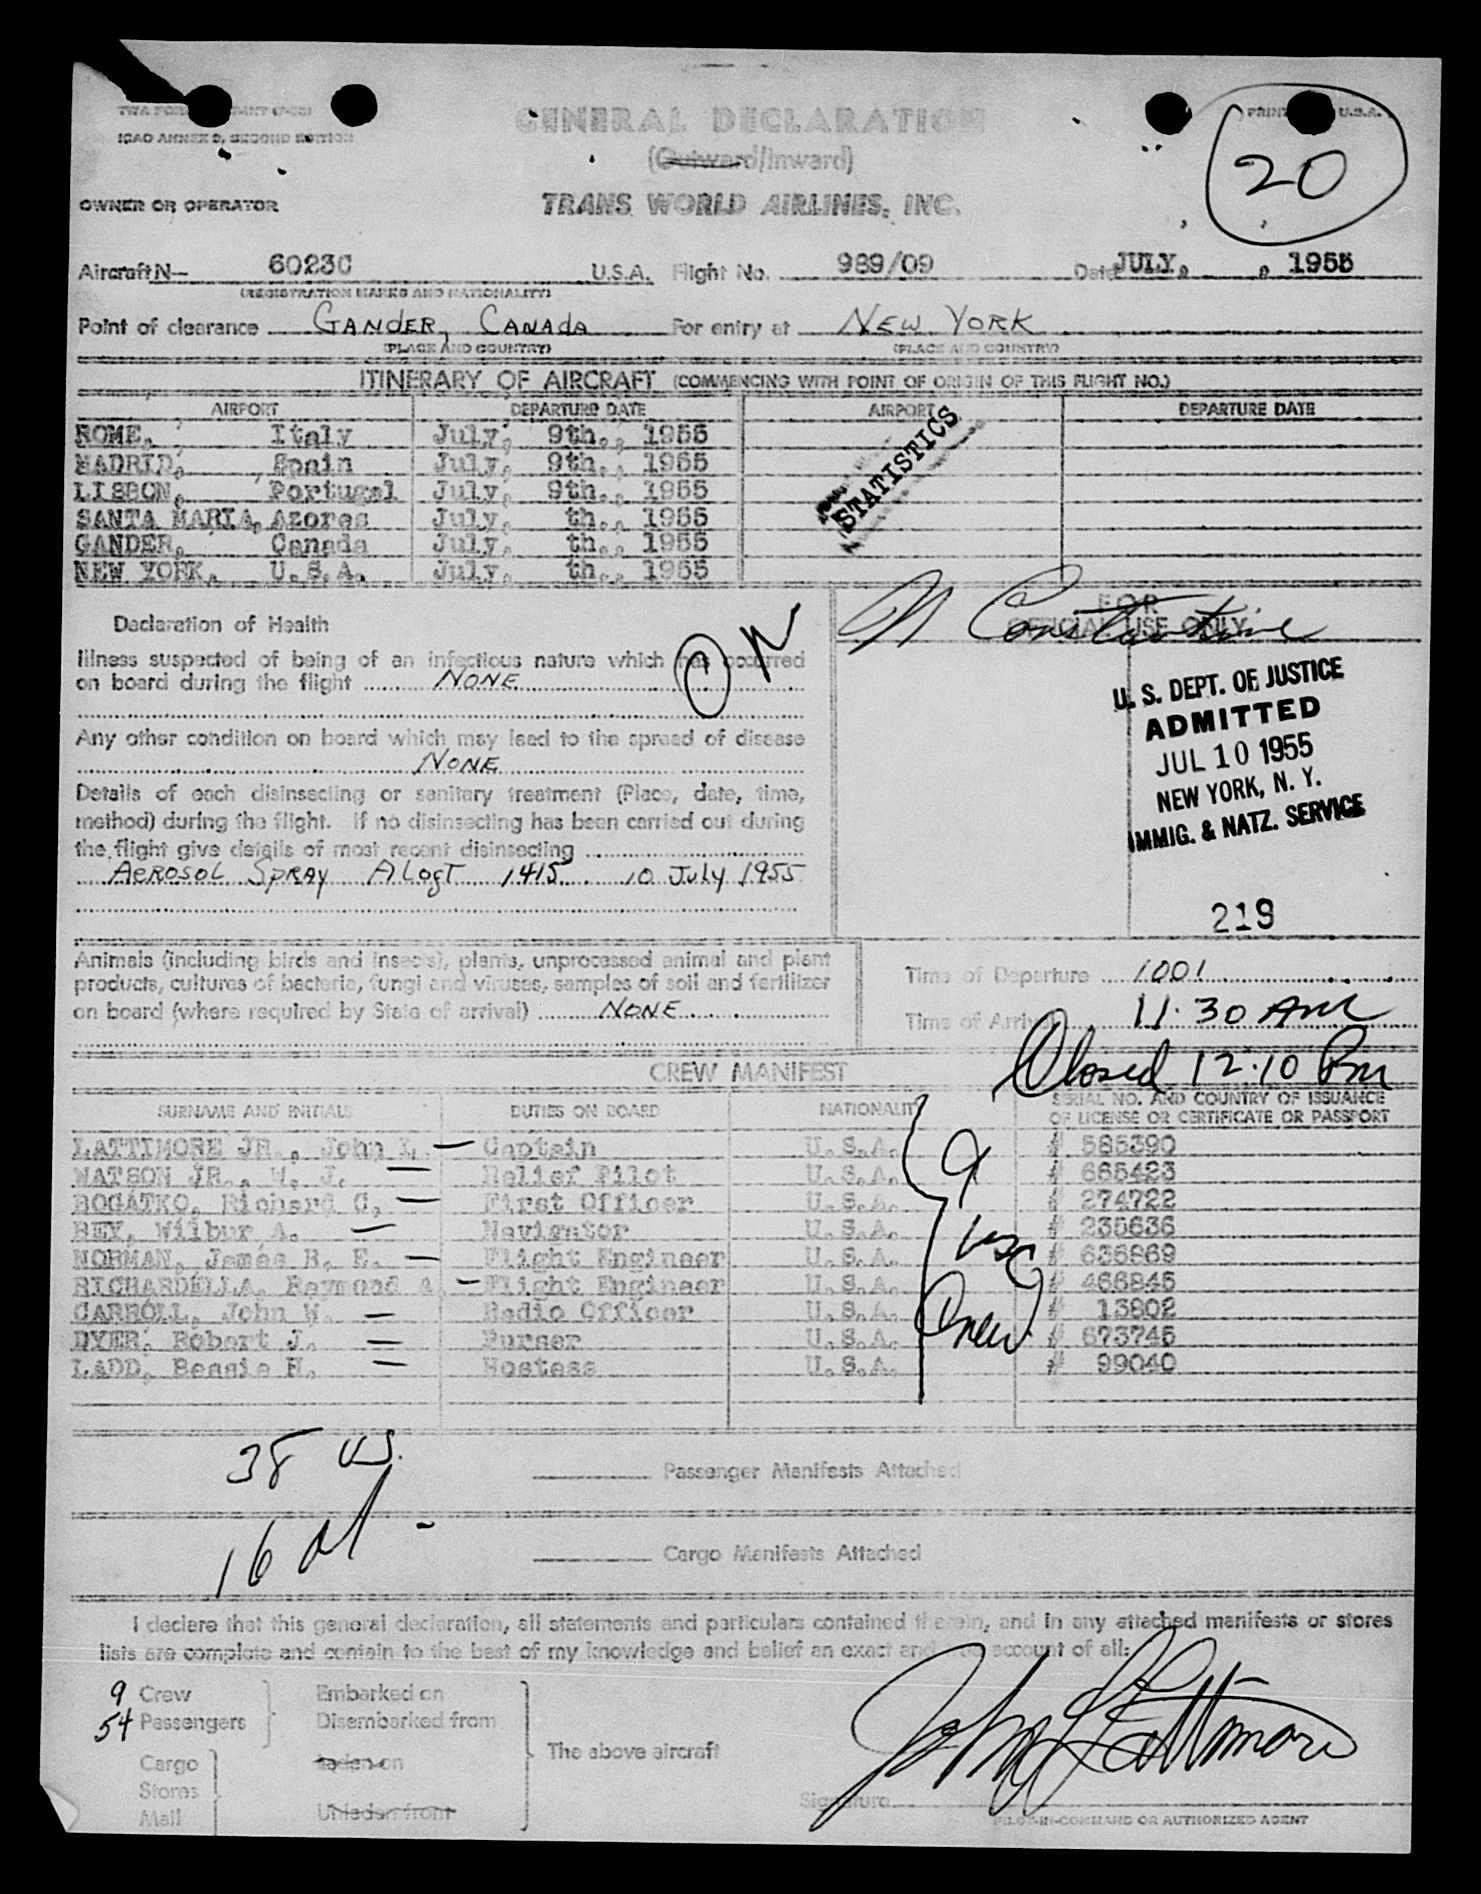 GENERAL DECLARATION
PRINTED U.S.A.
ICAO ANNEX 9, SECOND EDITION
(Outward/Inward)
20
OWNER OR OPERATOR
TRANS WORLD AIRLINES, INC.
Aircraft N- 6023C U.S.A. Flight No. 989/09 Date JULY, , 1955
(REGISTRATION MARKS AND NATIONALITY)
Point of clearance GANDER, CANADA For entry at NEW YORK
(PLACE AND COUNTRY) (PLACE AND COUNTRY)
ITINERARY OF AIRCRAFT (COMMENCING WITH POINT OF ORIGIN OF THIS FLIGHT NO.)
AIRPORT DEPARTURE DATE AIRPORT DEPARTURE DATE
ROME, Italy July, 9th., 1955
MADRID, Spain July, 9th., 1955
LISBON, Portugal July, 9th., 1955
SANTA MARIA, Azores July, th., 1955
GANDER, Canada July, th., 1955
NEW YORK, U.S.A. July, th., 1955
STATISTICS
Declaration of Health
Illness suspected of being of an infectious nature which has occurred
on board during the flight NONE
Any other condition on board which may lead to the spread of disease
NONE
Details of each disinsecting or sanitary treatment (Place, date, time,
method) during the flight. If no disinsecting has been carried out during
the flight give details of most recent disinsecting
AEROSOL SPRAY ALOFT 1415 10 July 1955
FOR
OFFICIAL USE ONLY
N Constantine
U. S. DEPT. OF JUSTICE
ADMITTED
JUL 10 1955
NEW YORK, N. Y.
IMMIG. & NATZ. SERVICE
219
Animals (including birds and insects), plants, unprocessed animal and plant
products, cultures of bacteria, fungi and viruses, samples of soil and fertilizer
on board (where required by State of arrival) NONE
Time of Departure 1001
Time of Arrival 11:30 AM
Closed 12:10 Pm
CREW MANIFEST
SURNAME AND INITIALS DUTIES ON BOARD NATIONALITY SERIAL NO. AND COUNTRY OF ISSUANCE
OF LICENSE OR CERTIFICATE OR PASSPORT
LATTIMORE JR., John L. Captain U.S.A. # 585390
WATSON JR., W. J. Relief Pilot U.S.A. # 665423
BOGATKO, Richard G. First Officer U.S.A. # 274722
REY, Wilbur A. Navigator U.S.A. # 235636
NORMAN, James R. E. Flight Engineer U.S.A. # 635869
RICHARDELLA, Raymond A. Flight Engineer U.S.A. # 466845
CARROLL, John W. Radio Officer U.S.A. # 13802
DYER, Robert J. Purser U.S.A. # 673745
LADD, Bessie H. Hostess U.S.A. # 99040
9
usc
Crew
38 US.
Passenger Manifests Attached
16 al -
Cargo Manifests Attached
I declare that this general declaration, all statements and particulars contained therein, and in any attached manifests or stores
lists are complete and contain to the best of my knowledge and belief an exact and account of all:
9 Crew Embarked on
54 Passengers Disembarked from
Cargo Laden on
Stores
Mail Unladen from
The above aircraft
John L Lattimore
Signature
PILOT-IN-COMMAND OR AUTHORIZED AGENT